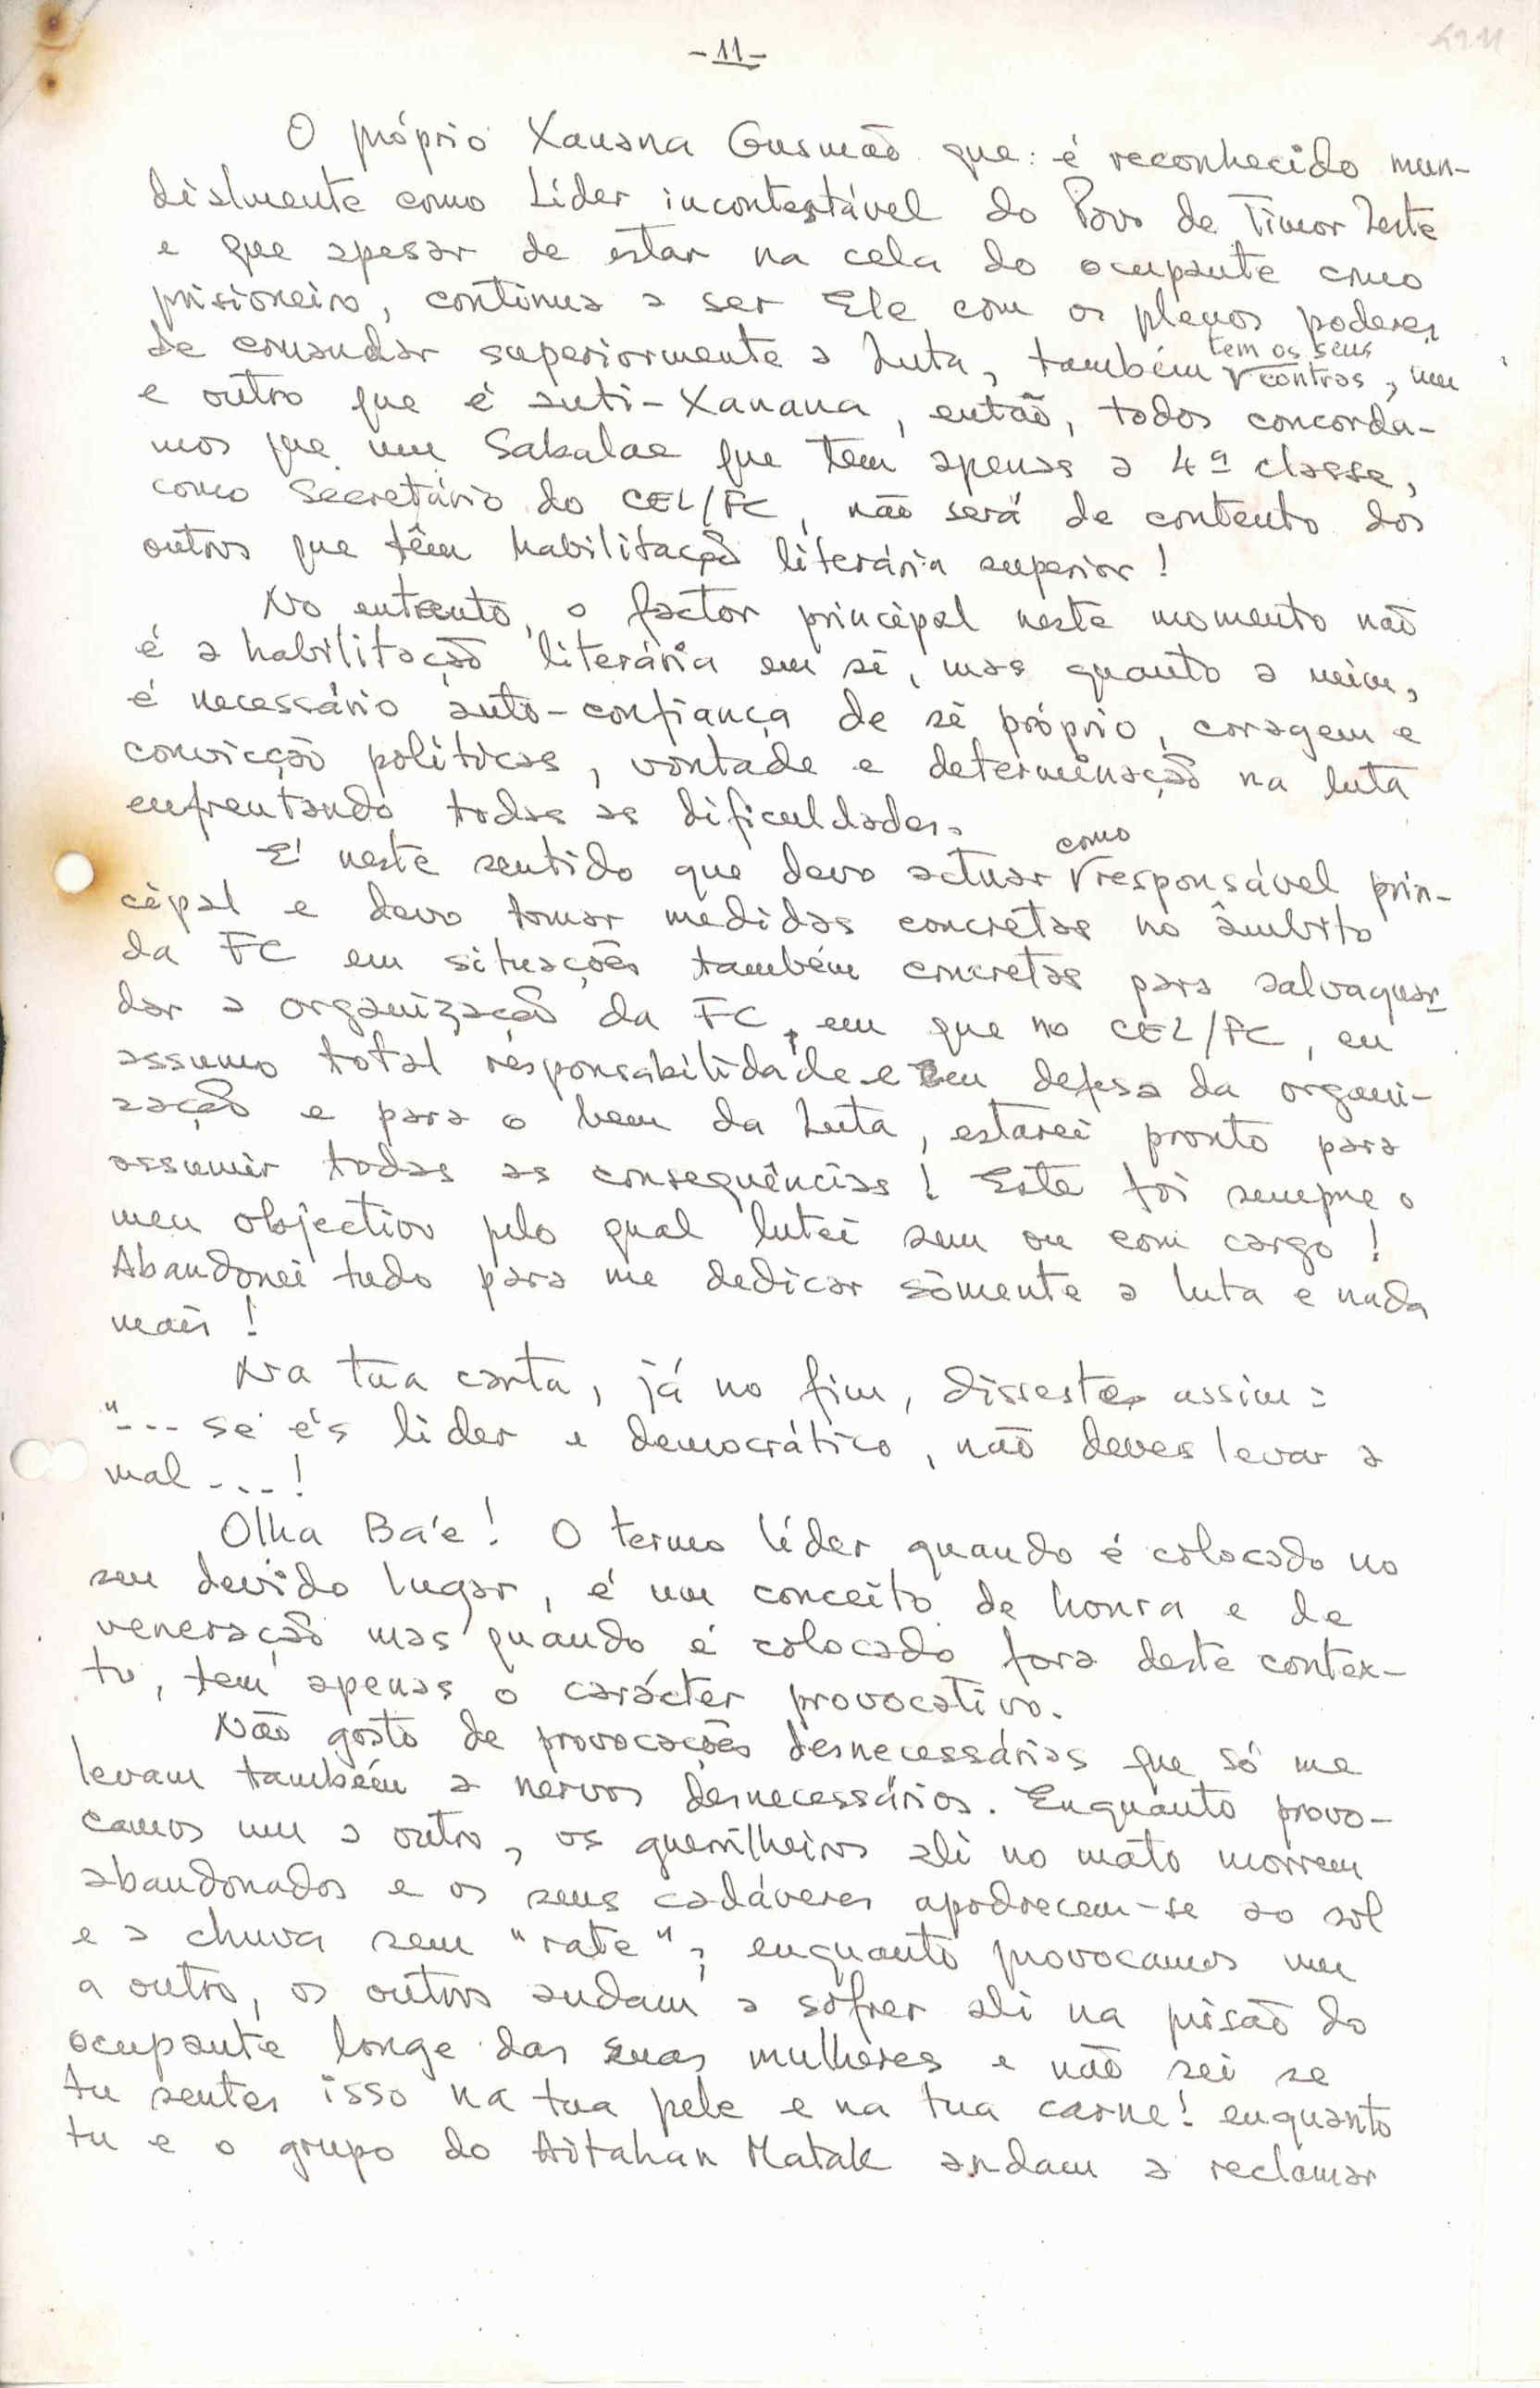 -11-
O próprio Xanana Gusmão que é reconhecido mun-
dialmente como Líder incontestável do Povo de Timor Leste
e que apesar de estar na cela do ocupante como
prisioneiro, continua a ser Ele com os plenos poderes
de comandar superiormente a Luta, também tem os seus contras, um
e outro que é anti-Xanana, então, todos concorda-
mos que um Sakalae que tem apenas a 4ª classe,
como Secretário do CEL/FC, não será de contento dos
outros que têm habilitação literária superior!
No entanto, o factor principal neste momento não
é a habilitação literária em si, mas quanto a mim,
é necessário auto-confiança de si próprio, coragem e
convicção políticas, vontade e determinação na luta
enfrentando todas as dificuldades.
É neste sentido que devo actuar como responsável prin-
cipal e devo tomar medidas concretas no âmbito
da FC em situações também concretas para salvaguar-
dar a organização da FC, em que no CEL/FC, eu
assumo total responsabilidade e em defesa da organi-
zação e para o bem da Luta, estarei pronto para
assumir todas as consequências! Este foi sempre o
meu objectivo pelo qual lutei sem ou com cargo!
Abandonei tudo para me dedicar sòmente a luta e nada
mais!
Na tua carta, já no fim, disseste assim:
"... se és líder e democrático, não deves levar a
mal ...!
Olha Ba'e! O termo líder quando é colocado no
seu devido lugar, é um conceito de honra e de
veneração mas quando é colocado fora deste contex-
to, tem apenas o carácter provocativo.
Não gosto de provocações desnecessárias que só me
levam também a nervos desnecessários. Enquanto provo-
camos um a outro, os guerrilheiros ali no mato morrem
abandonados e os seus cadáveres apodrecem-se ao sol
e a chuva sem "rate"; enquanto provocamos um
a outro, os outros andam a sofrer ali na prisão do
ocupante longe das suas mulheres e não sei se
tu sentes isso na tua pele e na tua carne! enquanto
tu e o grupo do Aitahan Matak andam a reclamar